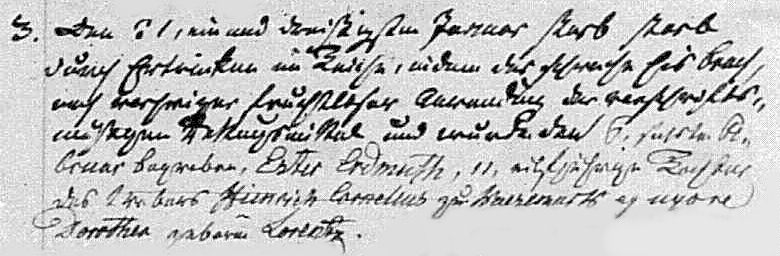 3. Den 31, ein und dreißigsten Januar starb starb
durch Ertrinken im Teiche, indem das schwache Eis brach,
nach vorheriger fruchtloser Anwendung der vorschrifts-
mäßigen Rettungsmittel und wurde den 6. sechsten Fe-
bruar begraben, Ester Erdmuth, 11, eilfjährige Tochter
des Webers Hinrich Cornelius zu et uxore
Dorothea geborn Lorentz.